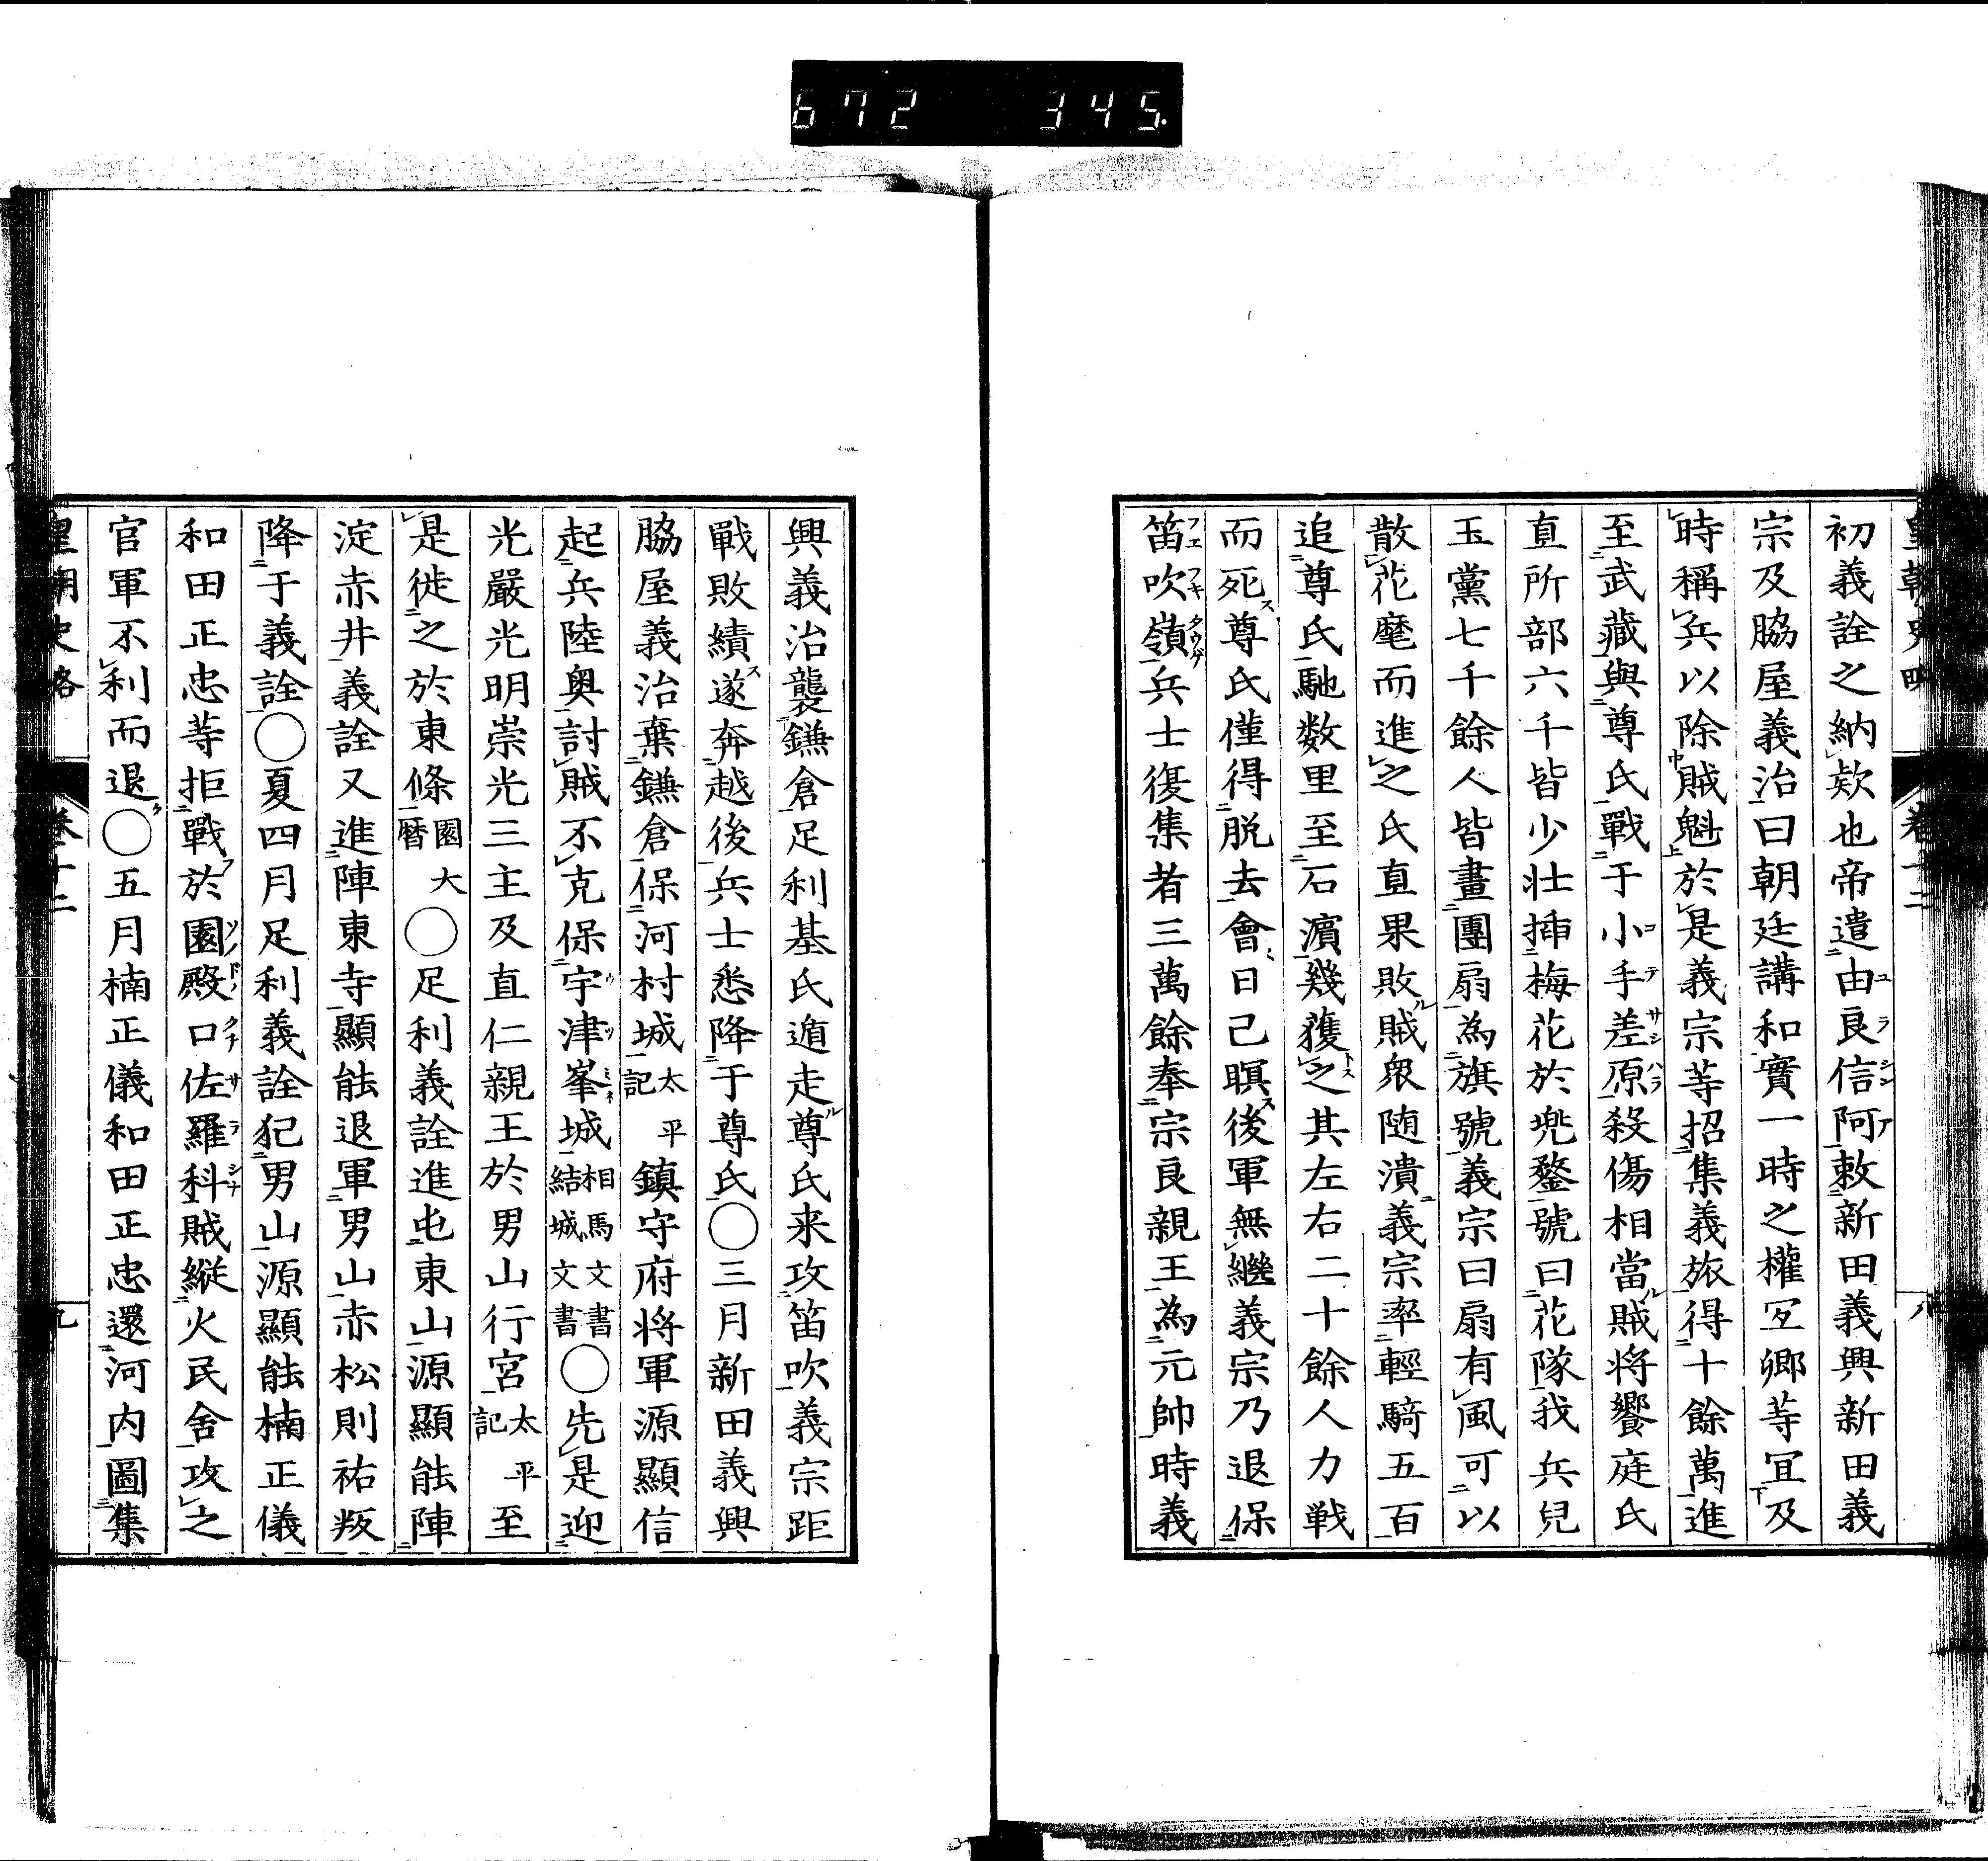 672 345.
皇朝史略 卷十二
初義詮之納款也帝遣由良信阿敕新田義興新田義
宗及脇屋義治曰朝廷講和實一時之權冝郷等宜及
時稱兵以除賊魁於是義宗等招集義旅得十餘萬進
至武藏與尊氏戰于小手差原殺傷相當賊将饗庭氏
直所部六千皆少壮挿梅花於兠鍪號曰花隊我兵兒
玉黨七千餘人皆畫團扇為旗號義宗曰扇有風可以
散花麾而進之氏直果敗賊衆随潰義宗率輕騎五百
追尊氏馳数里至石濵幾獲之其左右二十餘人力戦
而死尊氏僅得脱去會日已暝後軍無繼義宗乃退保
笛吹嶺兵士復集者三萬餘奉宗良親王為元帥時義
興義治襲鎌倉足利基氏遁走尊氏来攻笛吹義宗距
戰敗績遂奔越後兵士悉降于尊氏○三月新田義興
脇屋義治棄鎌倉保河村城太平記鎮守府将軍源顯信
起兵陸奥討賊不克保宇津峯城相馬文書結城文書○先是迎
光嚴光明崇光三主及直仁親王於男山行宮太平記至
是徙之於東條園大暦○足利義詮進屯東山源顯能陣
淀赤井義詮又進陣東寺顯能退軍男山赤松則祐叛
降于義詮○夏四月足利義詮犯男山源顯能楠正儀
和田正忠等拒戰於園殿口佐羅科賊縱火民舍攻之
官軍不利而退○五月楠正儀和田正忠還河内圖集
皇朝史略 卷十二 九